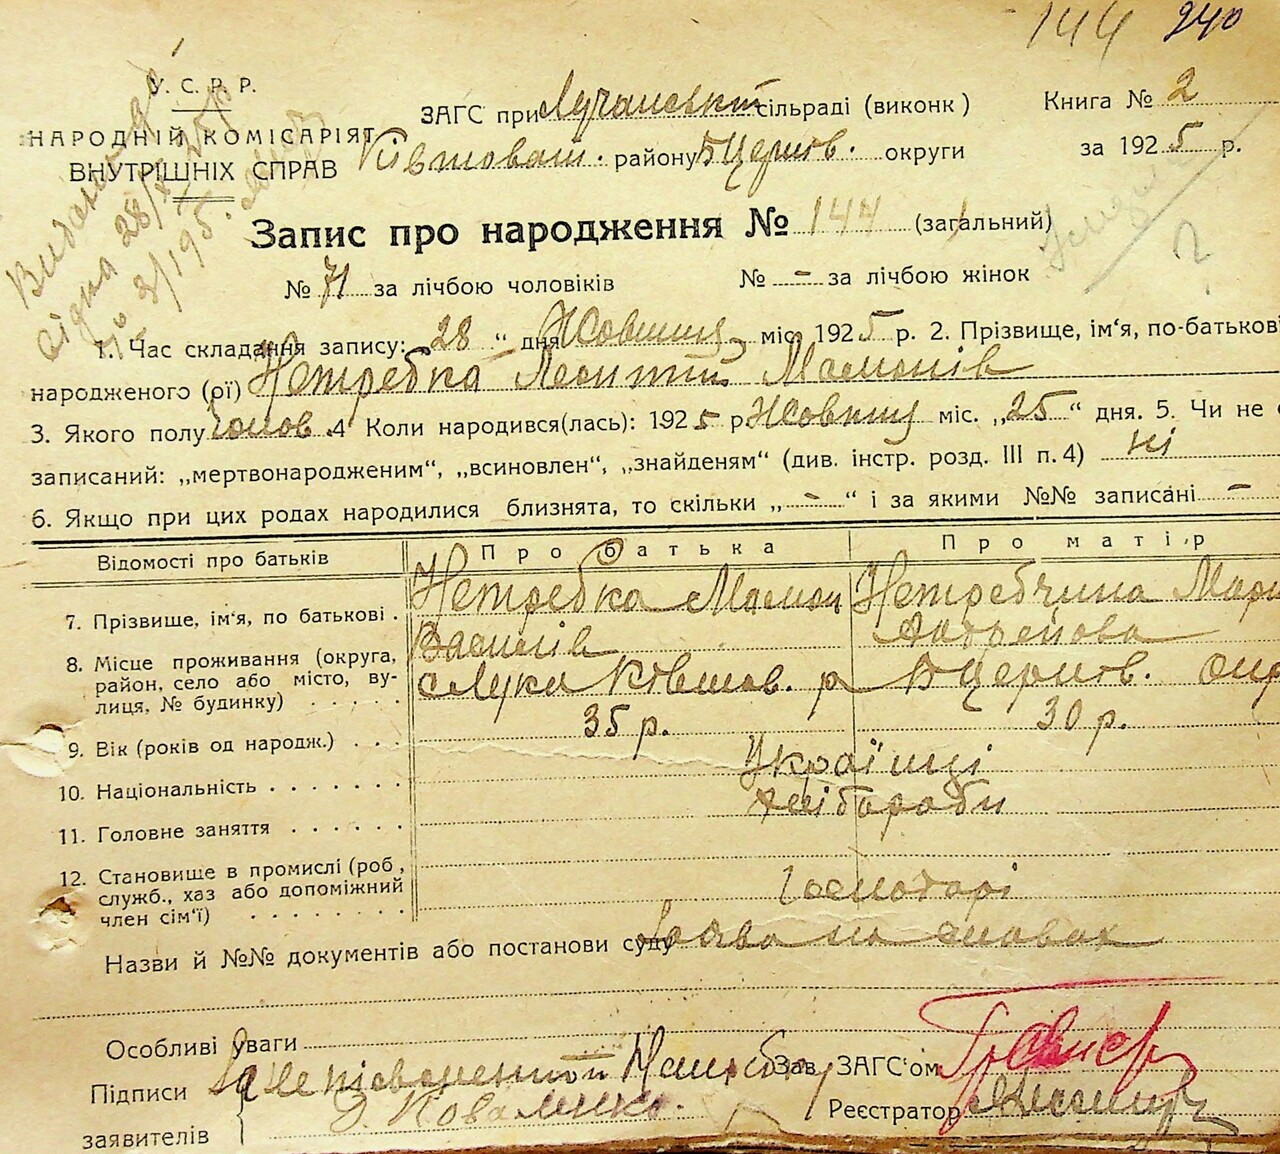 144 240
У. С. Р. Р.
НАРОДНІЙ КОМІСАРІЯТ
ВНУТРІШНІХ СПРАВ
ЗАГС при Лучанській сільраді (виконк)
Книга № 2
району БЦерков. округи
за 1925 р.
Запис про народження № 144 (загальний)
№ 71 за лічбою чоловіків № - за лічбою жінок
1. Час складання запису: 28 " дня Жовтня міс. 1925 р. 2. Прізвище, ім'я, по-батькові
народженого (ої) Нетребка Леонтій Мамонів
3. Якого полу чолов. 4 Коли народився(лась): 1925 р. Жовтня міс. „25“ дня. 5. Чи не
записаний: „мертвонародженим“, „всиновлен“, „знайденям“ (див. інстр. розд. III п. 4) ні
6. Якщо при цих родах народилися близнята, то скільки „ - “ і за якими №№ записані -
Відомості про батьків Про батька Про матір
7. Прізвище, ім'я, по батькові . Нетребка Мамон Василів Нетребчина Мари
8. Місце проживання (округа, район, село або місто, вулиця, № будинку) . . . . . Лука Ківшов. р БЦерков. окр
9. Вік (років од народж.) . . . 35 р. 30 р.
10. Національність . . . . . . . Українці
11. Головне заняття . . . . . . хлібороби
12. Становище в промислі (роб, служб., хаз або допоміжний член сім'ї) . . . . . . . Господарі
Назви й №№ документів або постанови суду Заява на словах
Особливі уваги
Підписи
заявителів
Коваленко.
Зав. ЗАГС'ом
Реєстратор